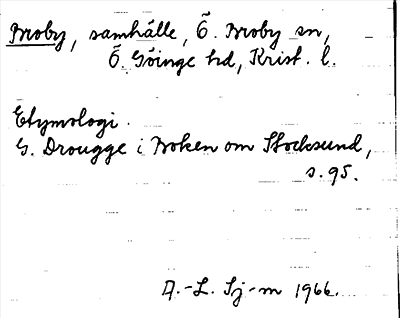 Broby, samhälle, Ö. Broby sn,
Ö. Göinge hd, Krist. l.
Etymologi.
G. Drougge i Boken om Stocksund,
s. 95.
A.-L. Sj-m 1966.